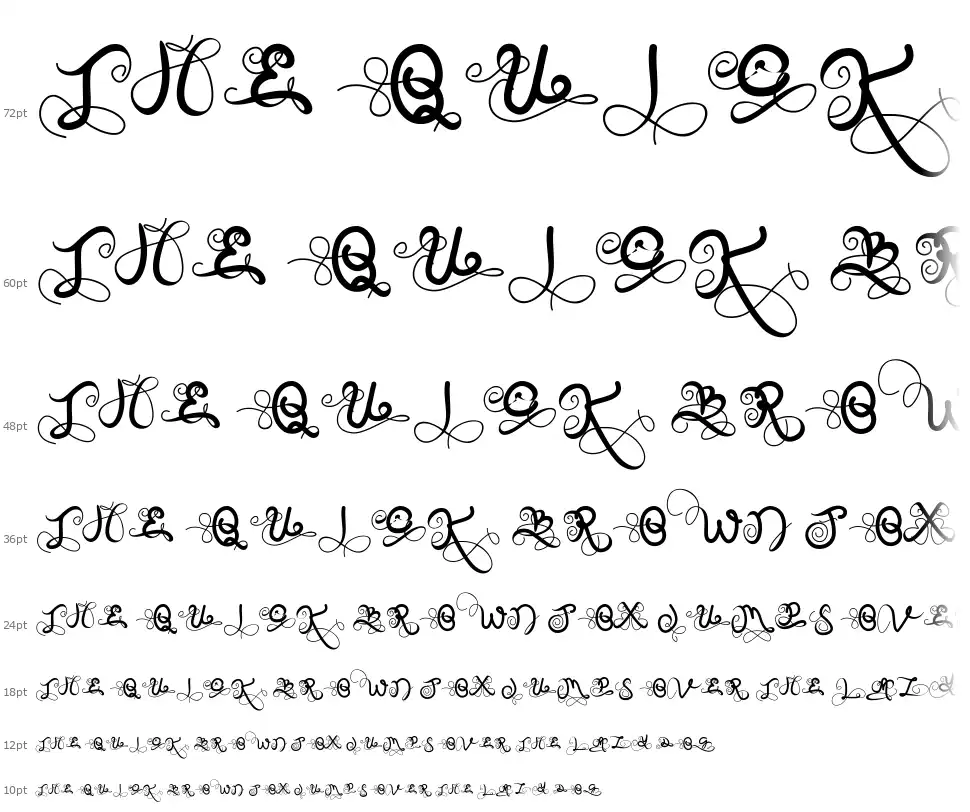 72pt THE QUICK
60pt THE QUICK BR
48pt THE QUICK BROW
36pt THE QUICK BROWN FOX
24pt THE QUICK BROWN FOX JUMPS OVE
18pt THE QUICK BROWN FOX JUMPS OVER THE LAZY
12pt THE QUICK BROWN FOX JUMPS OVER THE LAZY DOG
10pt THE QUICK BROWN FOX JUMPS OVER THE LAZY DOG